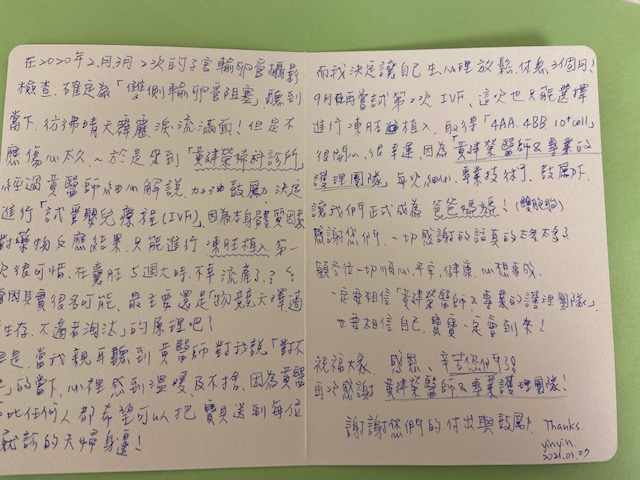 在2020年2月.3月 2次的子宮輸卵管攝影
檢查.確定為「雙側輸卵管阻塞」聽到
當下.彷彿晴天霹靂淚流滿面！但是不
應傷心太久～於是來到「黃建榮婦科診所」
經過黃醫師細心解說.加油鼓勵決定
進行「試管嬰兒療程(IVF)」因為本身體質因素
對藥物反應結果.只能進行凍胚植入.第一
次很可惜.在囊胚5週大時.不幸流產了？
因其實很多可能.最主要還是「物競天擇適
生存.不適者淘汰」的原理吧！
但是.當我親耳聽到黃醫師對我說「對不
」的當下.心裡感到溫暖.及不捨.因為黃醫
比任何人都希望可以把寶貝送到每位
就診的夫婦身邊！
而我決定讓自己生.心理放鬆.休息3個月！
9月再嘗試第2次IVF.這次也只能選擇
進行凍胚植入.取得「4AA.4BB 10+cell」
很開心.很幸運.因為「黃建榮醫師及專業的
護理團隊」每次細心.專業技術下.鼓勵下.
讓我們正式成為爸爸媽媽！(雙胞胎)
感謝您們.一切感謝的話真的太多太多了
願各位一切順心.平安.健康.心想事成.
一定要相信「黃建榮醫師及專業的護理團隊」
也要相信自己.寶寶一定會到來！
祝福大家.感恩、辛苦您們了！
再次感謝 黃建榮醫師及專業護理團隊！
謝謝您們的付出與鼓勵. Thanks.
yinyin.
2021.01.07